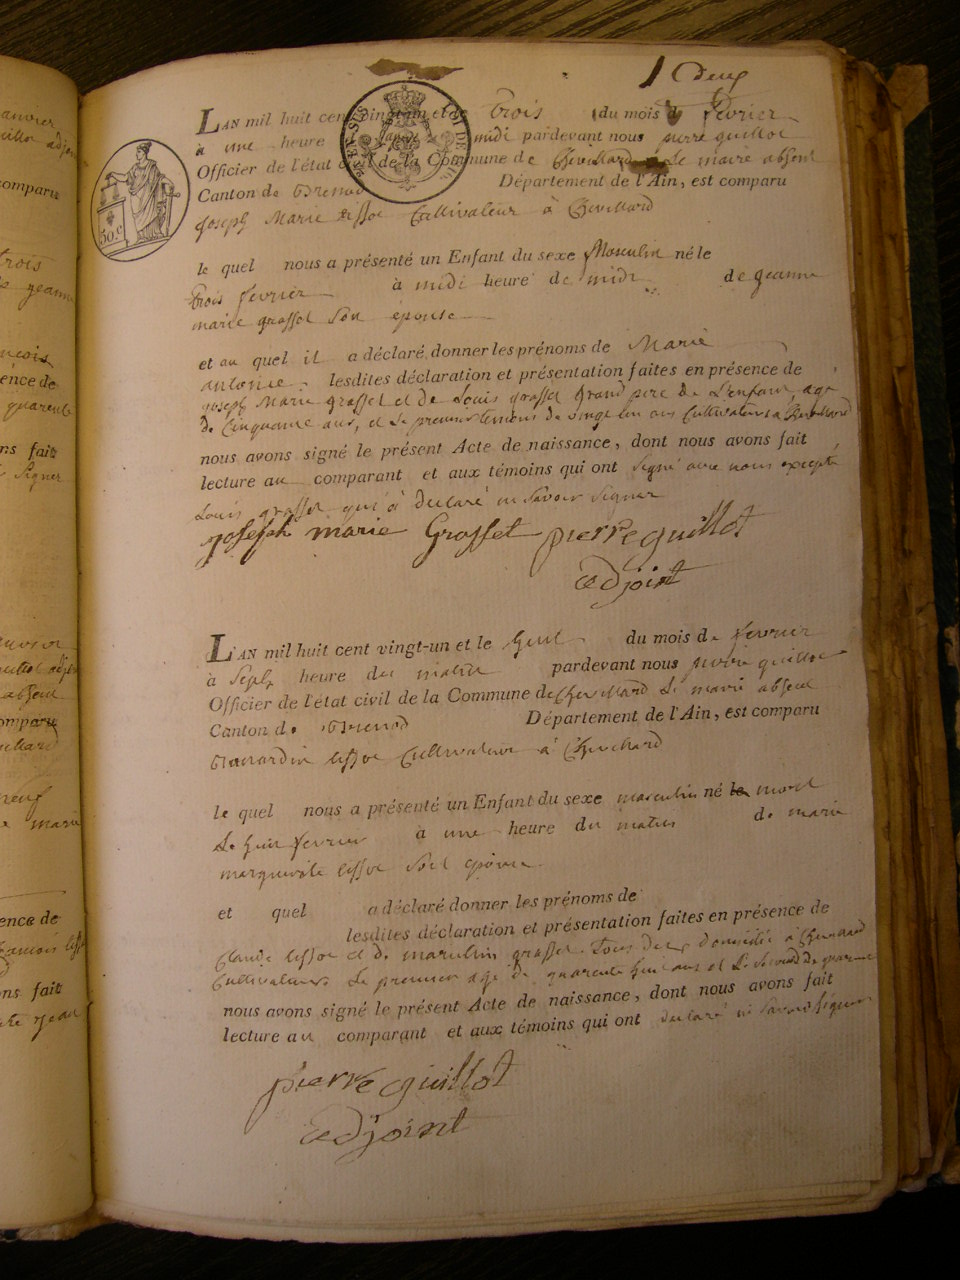 Deux
LAN mil huit cent vingt-un et le trois du mois de fevrier
à une heure après midi pardevant nous pierre guillot
Officier de l'état civil de la Commune de Chevillard Le maire absent
Canton de Brenod Département de l'Ain, est comparu
joseph Marie tissot Cultivateur à Chevillard
le quel nous a présenté un Enfant du sexe Masculin né le
trois fevrier à midi heure de midi de jeanne
marie grasset son épouse
et au quel il a déclaré donner les prénoms de Marie
antoine lesdites déclaration et présentation faites en présence de
joseph Marie grasset et de Louis grasset grand pere de L'enfant, age
de Cinquante ans, et Le premier temoins de vingt un ans Cultivateurs a Chevillard
nous avons signé le présent Acte de naissance, dont nous avons fait
lecture au comparant et aux témoins qui ont signé avec nous excepté
Louis grasset qui à déclaré ne savoir signer
joseph marie Grasset pierre guillot
adjoint
LAN mil huit cent vingt-un et le huit du mois de fevrier
à sept heure du matin pardevant nous pierre guillot
Officier de l'état civil de la Commune de Chevillard Le maire absent
Canton de Brenod Département de l'Ain, est comparu
tissot Cultivateur à Chevillard
le quel nous a présenté un Enfant du sexe masculin né le mort
Le huit fevrier à une heure du matin de marie
marguerite tissot son epouse
et quel a déclaré donner les prénoms de
lesdites déclaration et présentation faites en présence de
Claude tissot et de grasset tous deux domicilié à Chevillard
Cultivateurs Le premier age de quarente huit ans et Le second de
nous avons signé le présent Acte de naissance, dont nous avons fait
lecture au comparant et aux témoins qui ont declaré ne savoir signer
pierre guillot
adjoint
50.c